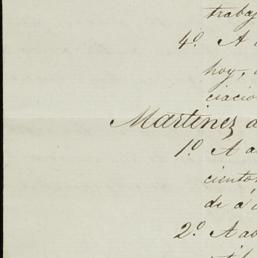 trabaj
4º A
hoy,
ciacio
Martinez a
1º A a
ciento
de a
2º A ab